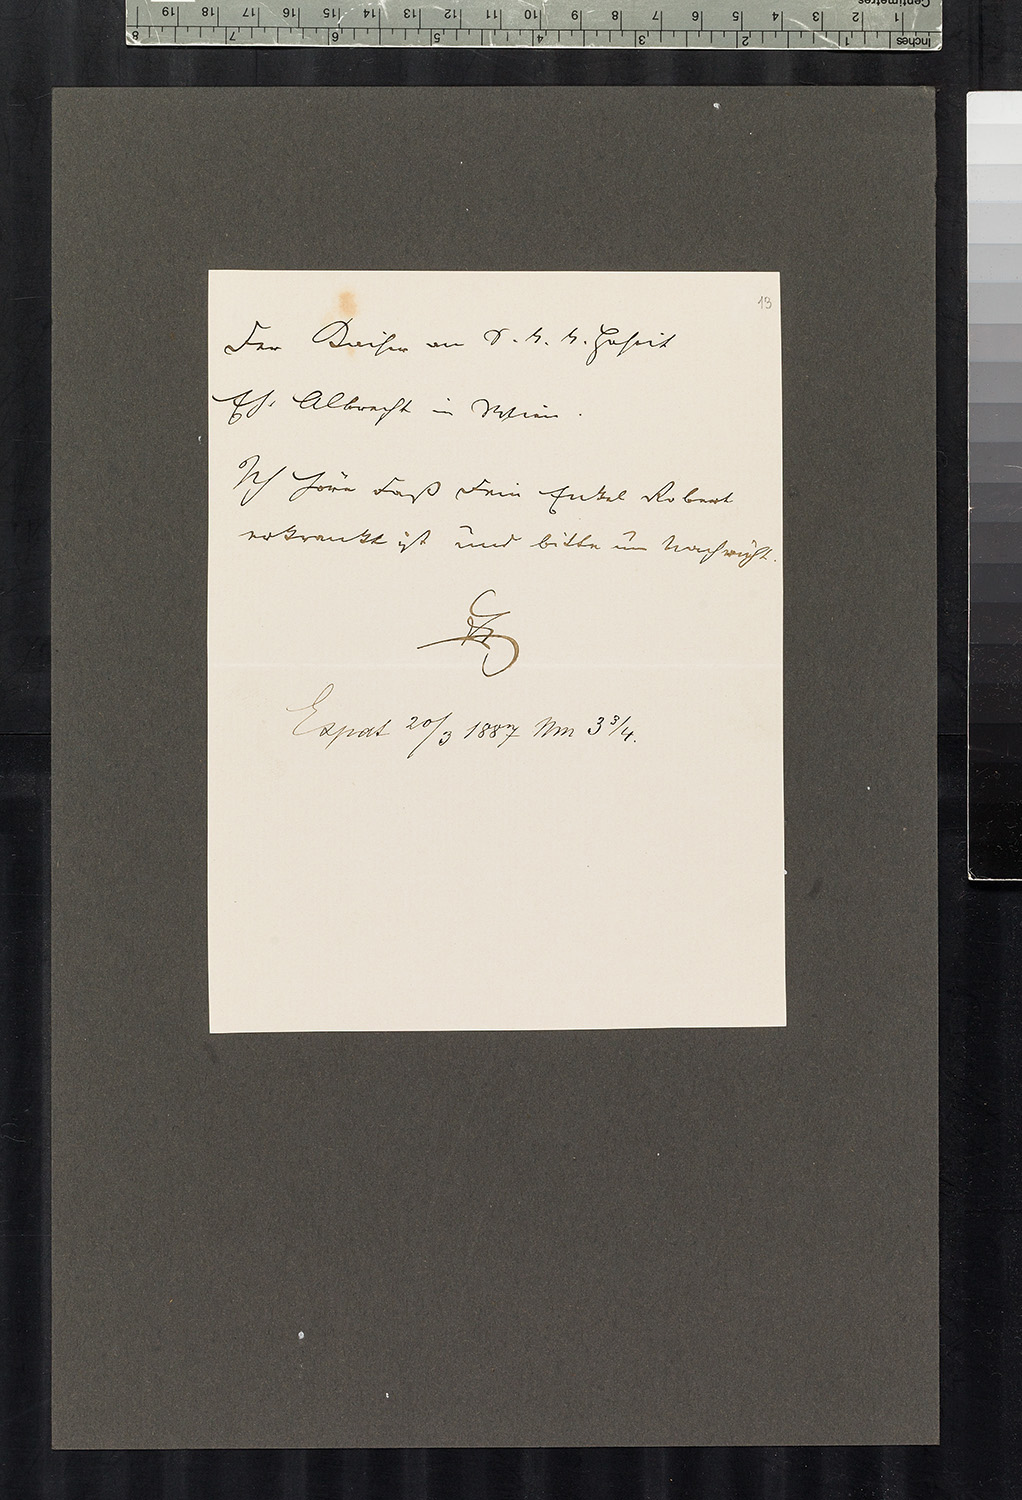 13
Der Kaiser an S. k. k. Hoheit
Eh. Albrecht in Wien.
Ich höre daß dein Enkel Robert
erkrankt ist und bitte um Nachricht.
Expdt 20/3 1887 Nm 3 3/4.
Inches 1 2 3 4 5 6 7 8
Centimetres 1 2 3 4 5 6 7 8 9 10 11 12 13 14 15 16 17 18 19